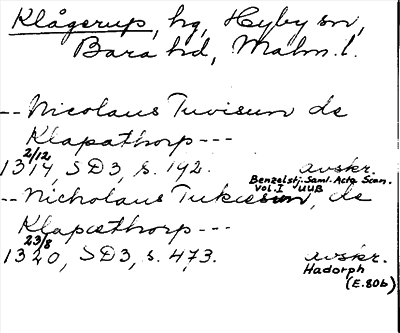 Klågerup, hg, Hyby sn,
Bara hd, Malm.l.
-- Nicolaus Tuvisun de
Klapathorp ---
2/12
1314, SD3, s. 192. avskr.
Benzelstj. Saml. Acta Scan.
Vol. I UUB
-- Nicholaus Tukæsun, de
Klapæthorp ---
23/8
1320, SD3, s. 473. avskr.
Hadorph
(E.80b)